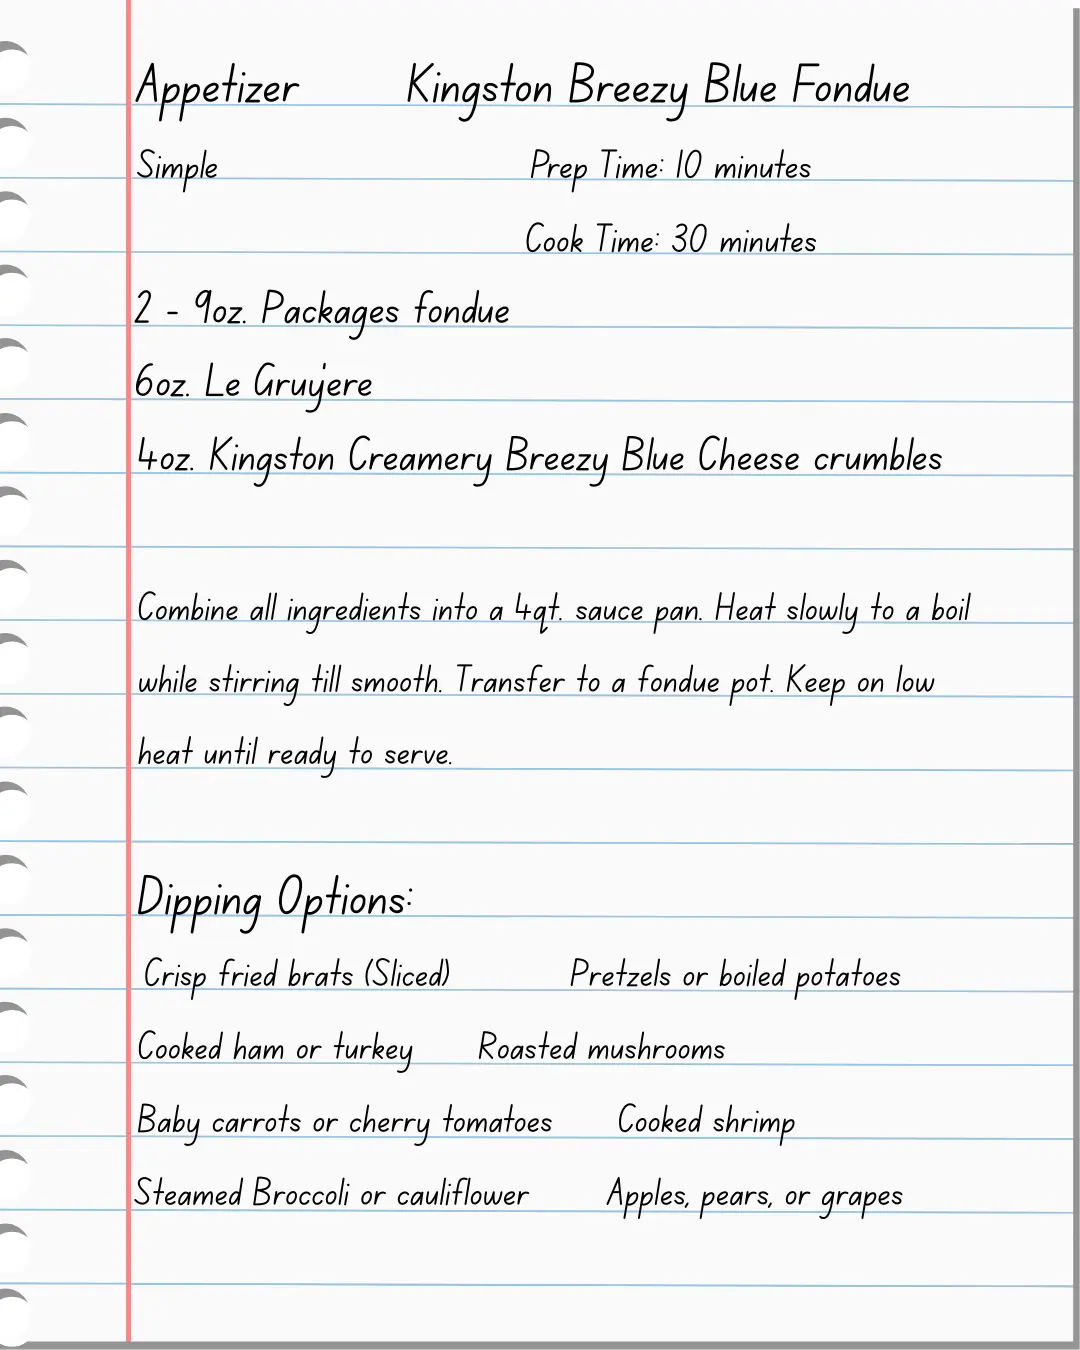 Appetizer Kingston Breezy Blue Fondue
Simple Prep Time: 10 minutes
Cook Time: 30 minutes
2 - 9oz. Packages fondue
6oz. Le Gruyere
4oz. Kingston Creamery Breezy Blue Cheese crumbles
Combine all ingredients into a 4qt. sauce pan. Heat slowly to a boil
while stirring till smooth. Transfer to a fondue pot. Keep on low
heat until ready to serve.
Dipping Options:
Crisp fried brats (Sliced) Pretzels or boiled potatoes
Cooked ham or turkey Roasted mushrooms
Baby carrots or cherry tomatoes Cooked shrimp
Steamed Broccoli or cauliflower Apples, pears, or grapes